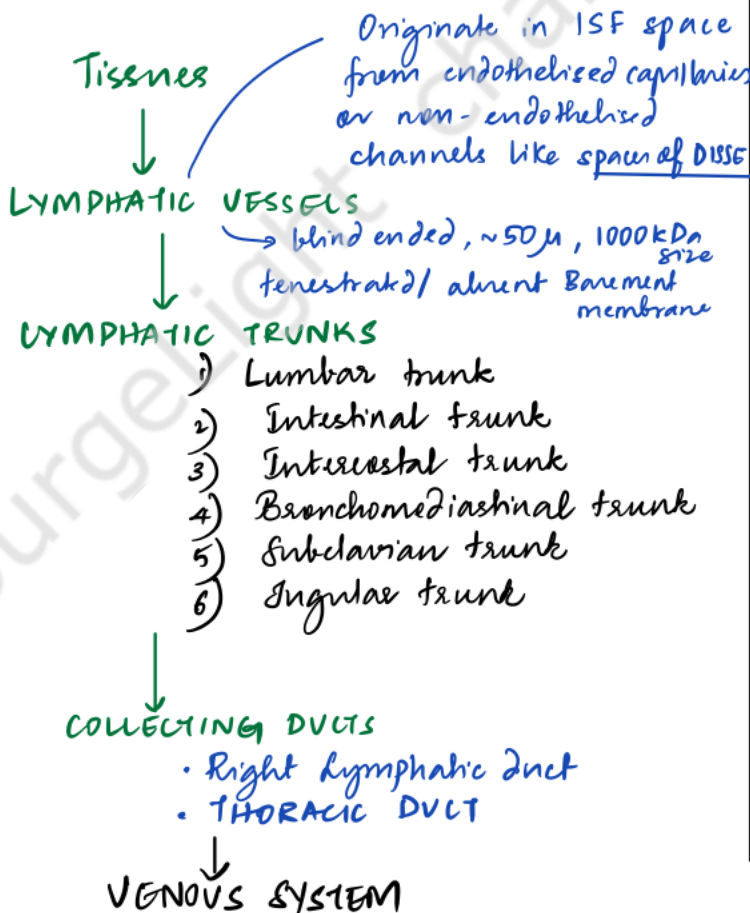 Originate in ISF space
from endothelised capillaries
or non-endothelised
channels like spaces of DISSE
Tissues
LYMPHATIC VESSELS
→ blind ended, ~50μ, 1000kDa size
fenestrated/ absent Basement membrane
LYMPHATIC TRUNKS
1) Lumbar trunk
2) Intestinal trunk
3) Intercostal trunk
4) Bronchomediastinal trunk
5) Subclavian trunk
6) Jugular trunk
COLLECTING DUCTS
• Right Lymphatic duct
• THORACIC DUCT
VENOUS SYSTEM